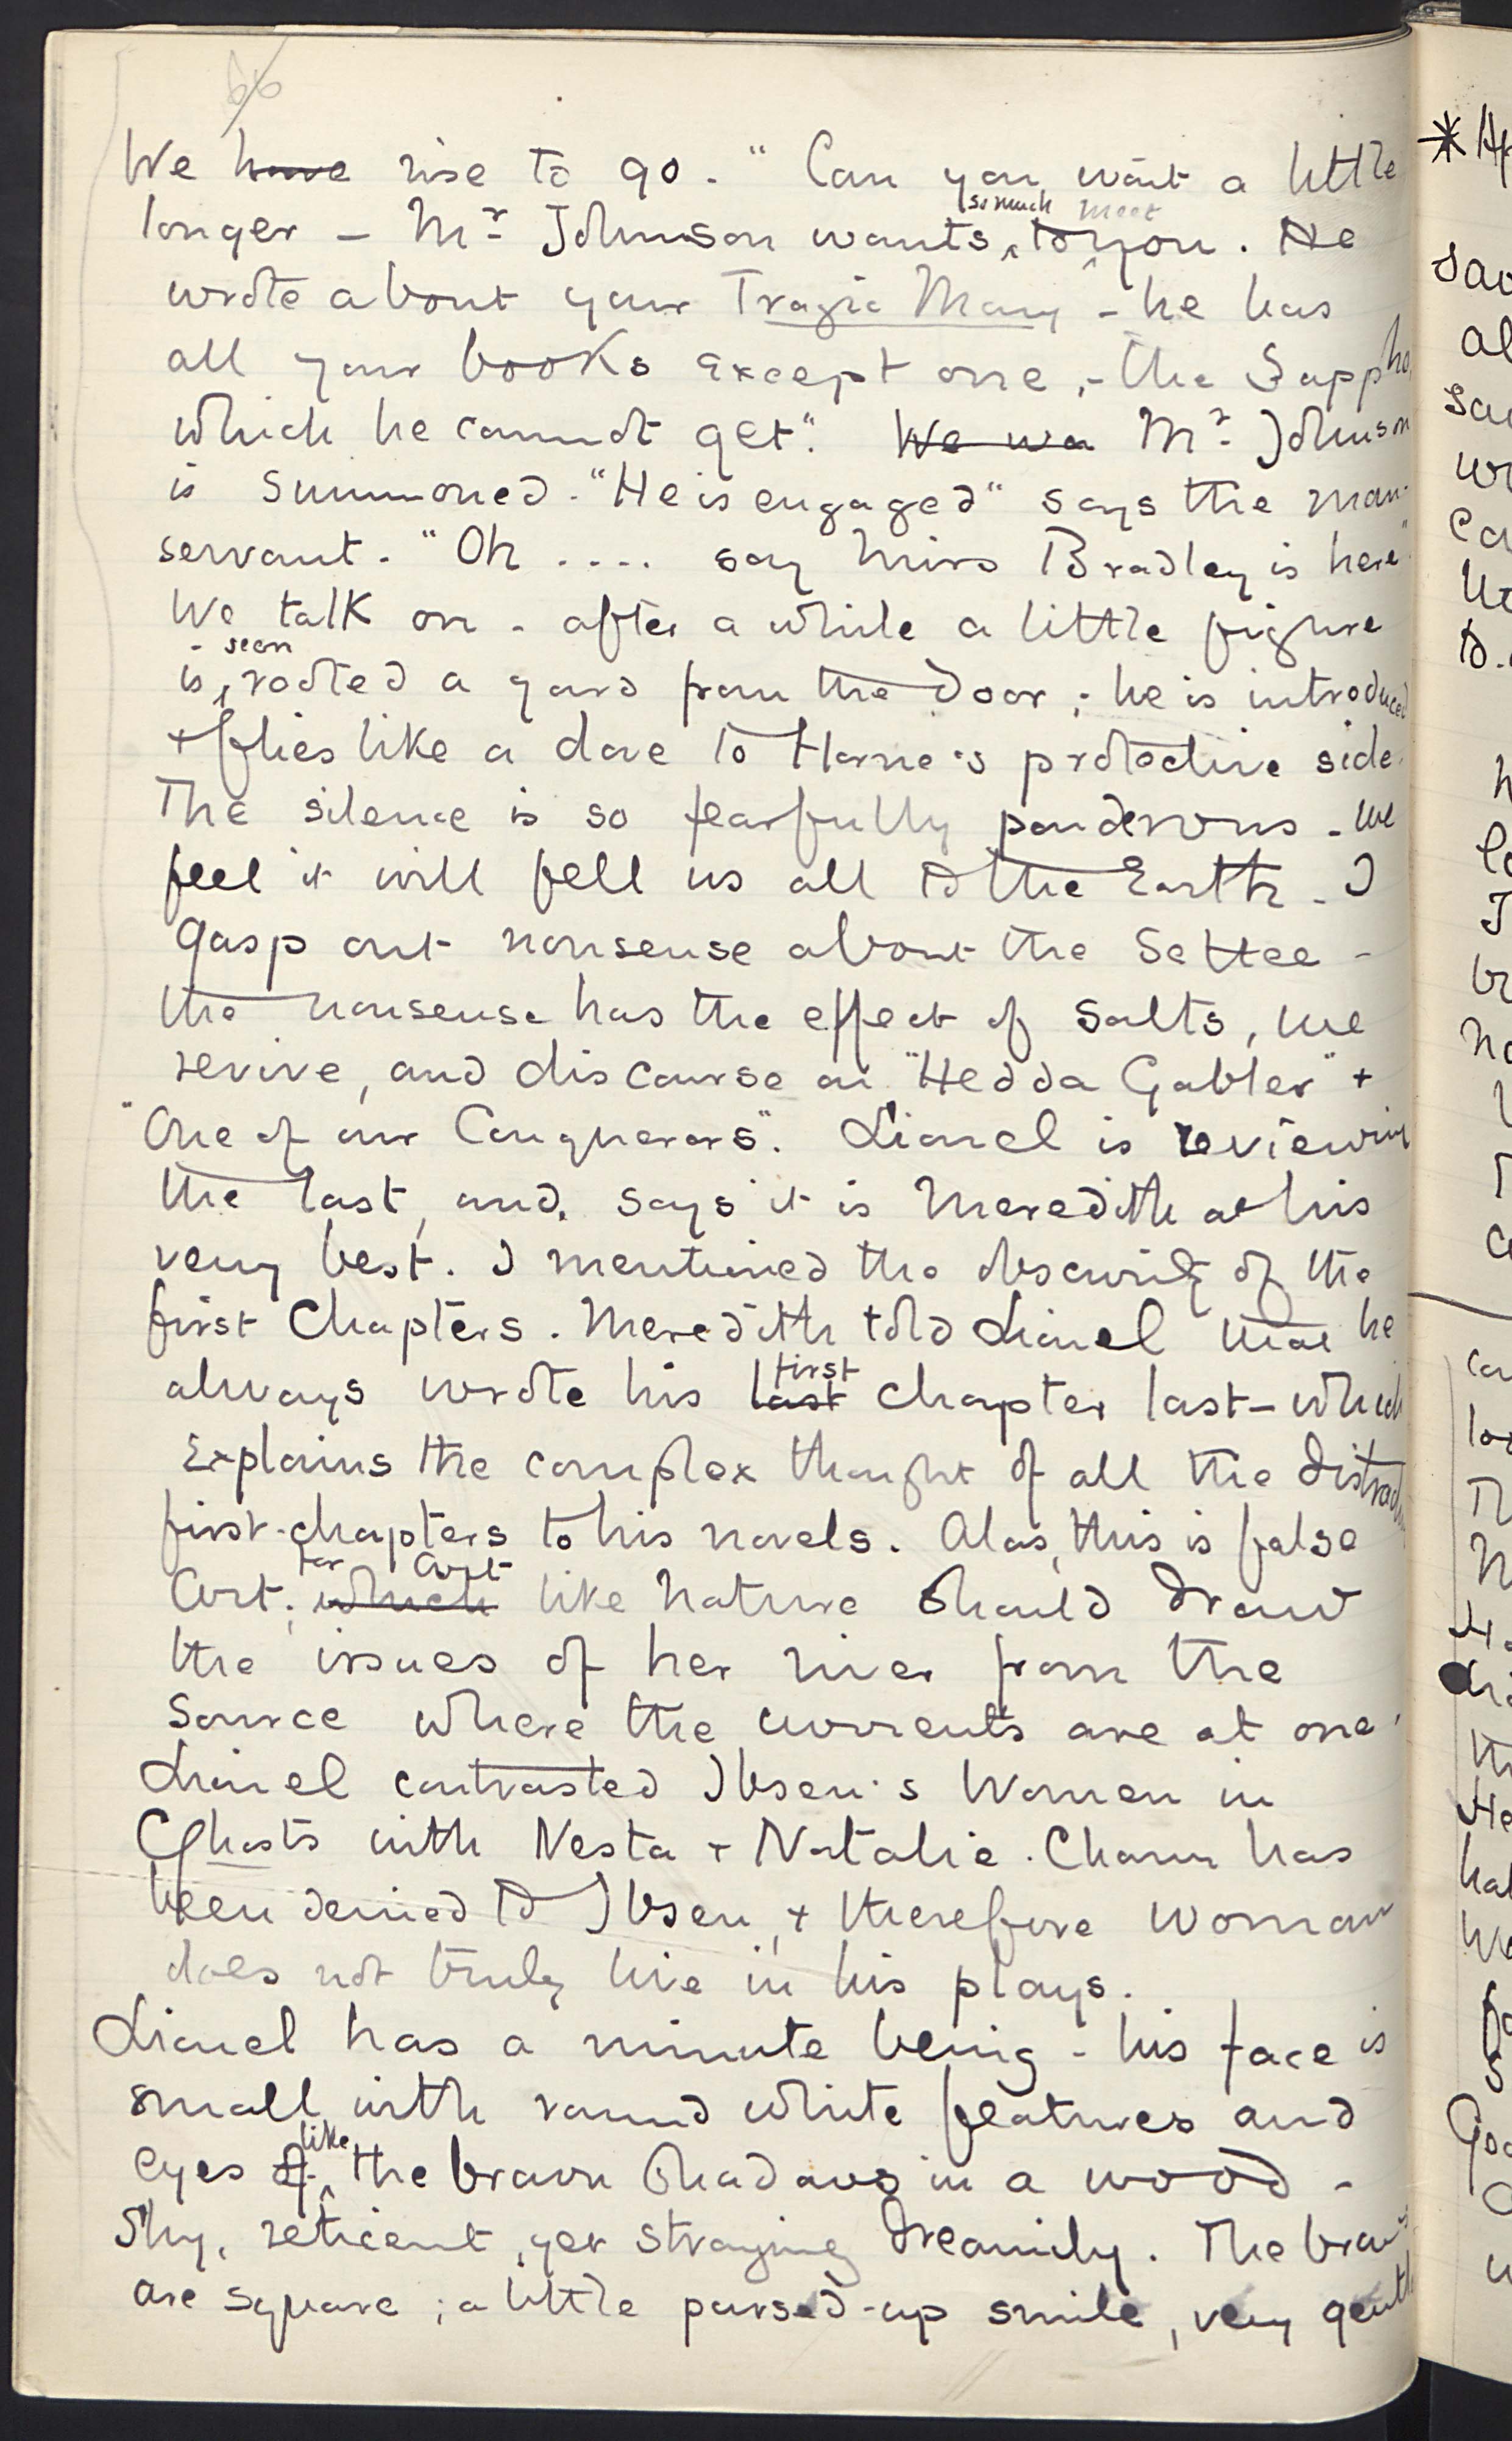 66
We have rise to go. "Can you wait a little
longer – Mr Johnson wants so much to meet you. He
wrote about your Tragic Mary – he has
all your books except one, – the Sappho,
which he cannot get". We wa Mr Johnson
is summoned. "He is engaged" says the man-
servant. "Oh .... say Miss Bradley is here"
We talk on – after a while a little figure
is seen rooted a yard from the door; he is introduced
+ flies like a dove to Horne's protective side.
The silence is so fearfully ponderous – we
feel it will fell us all to the Earth – I
gasp out nonsense about the Settee –
the nonsense has the effect of salts, we
revive, and discourse on "Hedda Gabler" +
"One of our Conquerors". Lionel is reviewing
the last, and says it is Meredith at his
very best. I mentioned the obscurity of the
first Chapters. Meredith told Lionel that he
always wrote his last first chapter last – which
explains the complex thought of all the
first-chapters to his novels. Alas, this is false
Art; which for Art like Nature should draw
the issues of her river from the
source where the currents are at one.
Lionel contrasted Ibsen's Women in
Ghosts with Nesta + Natalie. Charm has
been denied to Ibsen, + therefore woman
does not truly live in his plays.
Lionel has a minute being – his face is
small with round white features and
eyes of like the brown shadows in a wood –
Shy, reticent, yet straying dreamily. The brows
are square; a little pursed-up smile, very gentle